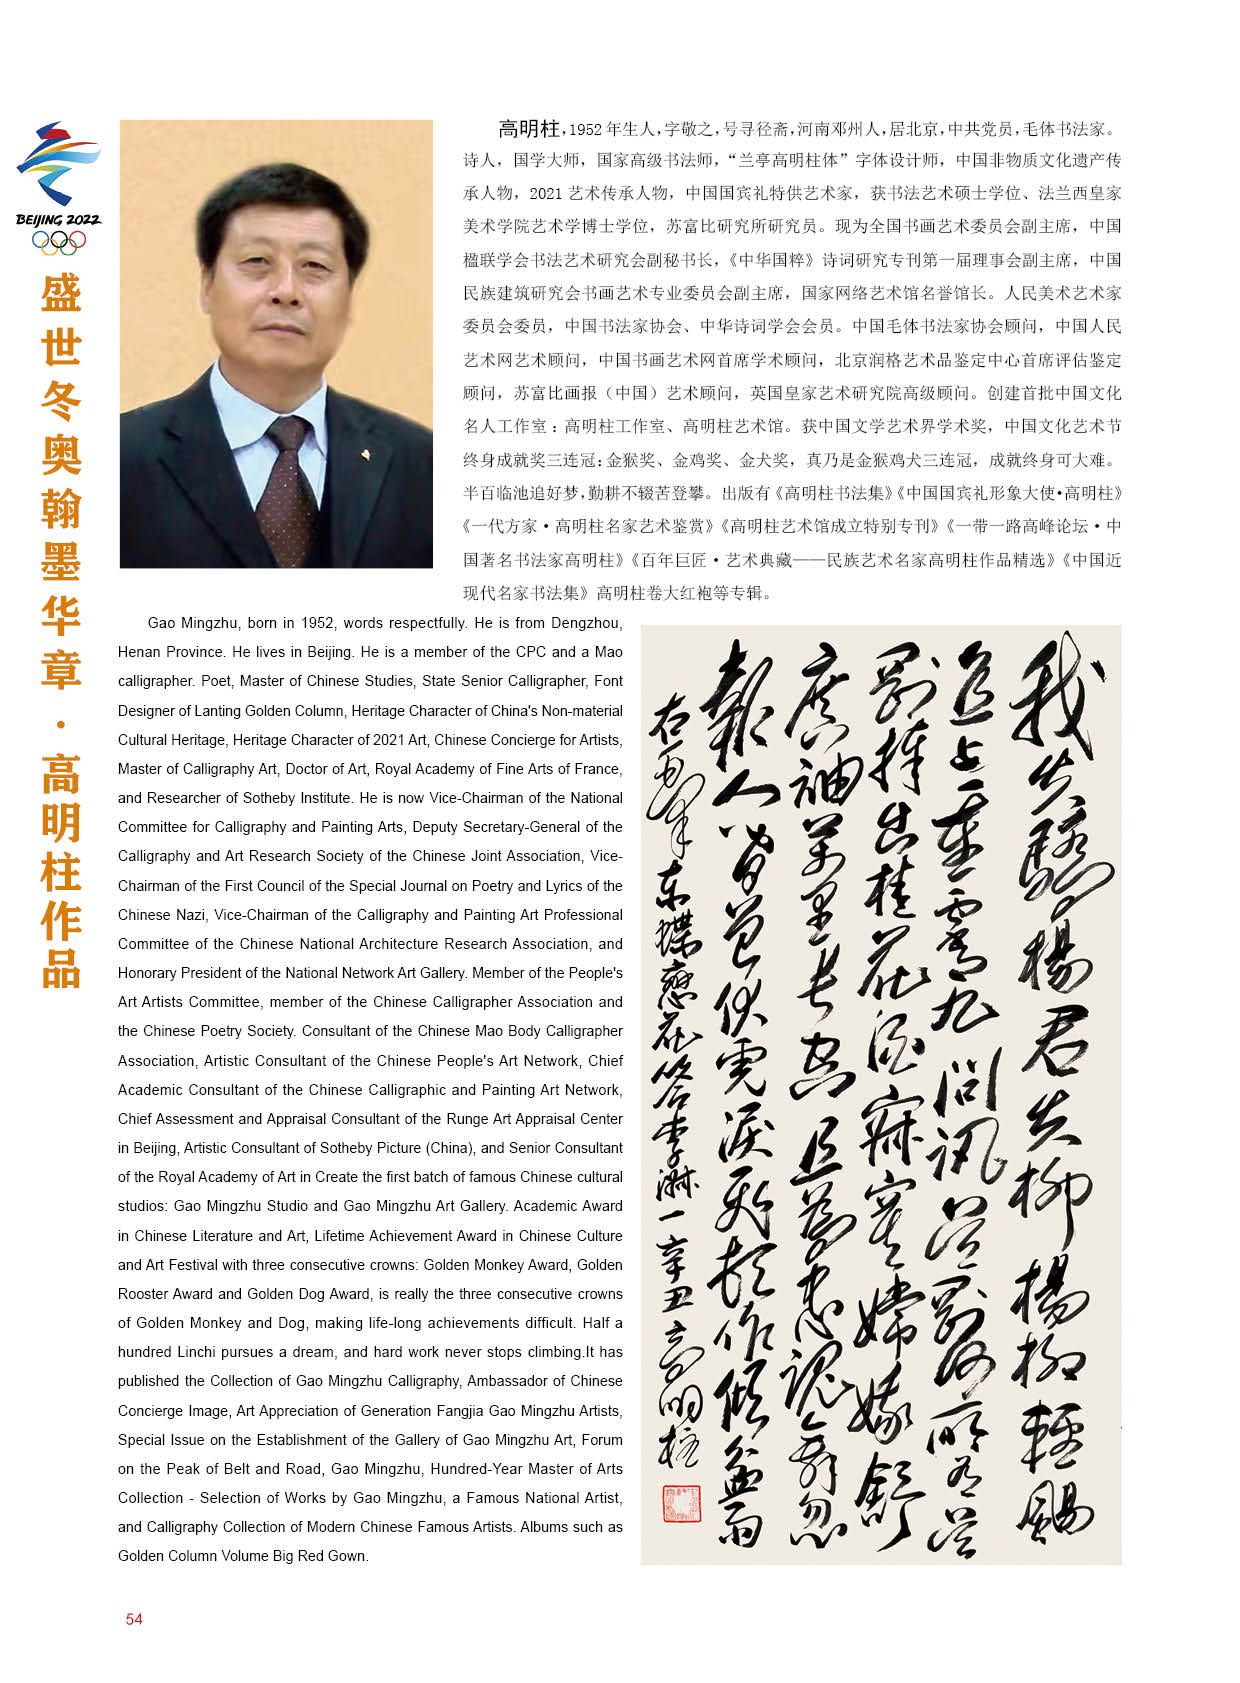 BEIJING 2022
盛世冬奥翰墨华章·高明柱作品
高明柱,1952 年生人,字敬之,号寻径斋,河南邓州人,居北京,中共党员,毛体书法家。
诗人，国学大师，国家高级书法师，“兰亭高明柱体”字体设计师，中国非物质文化遗产传
承人物，2021 艺术传承人物，中国国宾礼特供艺术家，获书法艺术硕士学位、法兰西皇家
美术学院艺术学博士学位，苏富比研究所研究员。现为全国书画艺术委员会副主席，中国
楹联学会书法艺术研究会副秘书长，《中华国粹》诗词研究专刊第一届理事会副主席，中国
民族建筑研究会书画艺术专业委员会副主席，国家网络艺术馆名誉馆长。人民美术艺术家
委员会委员，中国书法家协会、中华诗词学会会员。中国毛体书法家协会顾问，中国人民
艺术网艺术顾问，中国书画艺术网首席学术顾问，北京润格艺术品鉴定中心首席评估鉴定
顾问，苏富比画报（中国）艺术顾问，英国皇家艺术研究院高级顾问。创建首批中国文化
名人工作室：高明柱工作室、高明柱艺术馆。获中国文学艺术界学术奖，中国文化艺术节
终身成就奖三连冠：金猴奖、金鸡奖、金犬奖，真乃是金猴鸡犬三连冠，成就终身可大难。
半百临池追好梦，勤耕不辍苦登攀。出版有《高明柱书法集》《中国国宾礼形象大使•高明柱》
《一代方家·高明柱名家艺术鉴赏》《高明柱艺术馆成立特别专刊》《一带一路高峰论坛·中
国著名书法家高明柱》《百年巨匠·艺术典藏——民族艺术名家高明柱作品精选》《中国近
现代名家书法集》高明柱卷大红袍等专辑。
Gao Mingzhu, born in 1952, words respectfully. He is from Dengzhou,
Henan Province. He lives in Beijing. He is a member of the CPC and a Mao
calligrapher. Poet, Master of Chinese Studies, State Senior Calligrapher, Font
Designer of Lanting Golden Column, Heritage Character of China's Non-material
Cultural Heritage, Heritage Character of 2021 Art, Chinese Concierge for Artists,
Master of Calligraphy Art, Doctor of Art, Royal Academy of Fine Arts of France,
and Researcher of Sotheby Institute. He is now Vice-Chairman of the National
Committee for Calligraphy and Painting Arts, Deputy Secretary-General of the
Calligraphy and Art Research Society of the Chinese Joint Association, Vice-
Chairman of the First Council of the Special Journal on Poetry and Lyrics of the
Chinese Nazi, Vice-Chairman of the Calligraphy and Painting Art Professional
Committee of the Chinese National Architecture Research Association, and
Honorary President of the National Network Art Gallery. Member of the People's
Art Artists Committee, member of the Chinese Calligrapher Association and
the Chinese Poetry Society. Consultant of the Chinese Mao Body Calligrapher
Association, Artistic Consultant of the Chinese People's Art Network, Chief
Academic Consultant of the Chinese Calligraphic and Painting Art Network,
Chief Assessment and Appraisal Consultant of the Runge Art Appraisal Center
in Beijing, Artistic Consultant of Sotheby Picture (China), and Senior Consultant
of the Royal Academy of Art in Create the first batch of famous Chinese cultural
studios: Gao Mingzhu Studio and Gao Mingzhu Art Gallery. Academic Award
in Chinese Literature and Art, Lifetime Achievement Award in Chinese Culture
and Art Festival with three consecutive crowns: Golden Monkey Award, Golden
Rooster Award and Golden Dog Award, is really the three consecutive crowns
of Golden Monkey and Dog, making life-long achievements difficult. Half a
hundred Linchi pursues a dream, and hard work never stops climbing.It has
published the Collection of Gao Mingzhu Calligraphy, Ambassador of Chinese
Concierge Image, Art Appreciation of Generation Fangjia Gao Mingzhu Artists,
Special Issue on the Establishment of the Gallery of Gao Mingzhu Art, Forum
on the Peak of Belt and Road, Gao Mingzhu, Hundred-Year Master of Arts
Collection - Selection of Works by Gao Mingzhu, a Famous National Artist,
and Calligraphy Collection of Modern Chinese Famous Artists. Albums such as
Golden Column Volume Big Red Gown.
我失驕楊君失柳楊柳輕颺
直上重霄九問訊吳剛何所有吳
剛捧出桂花酒寂寞嫦娥舒
廣袖萬里長空且為忠魂舞忽
報人間曾伏虎淚飛頓作傾盆雨
右毛澤東蝶戀花答李淑一辛丑高明柱
54